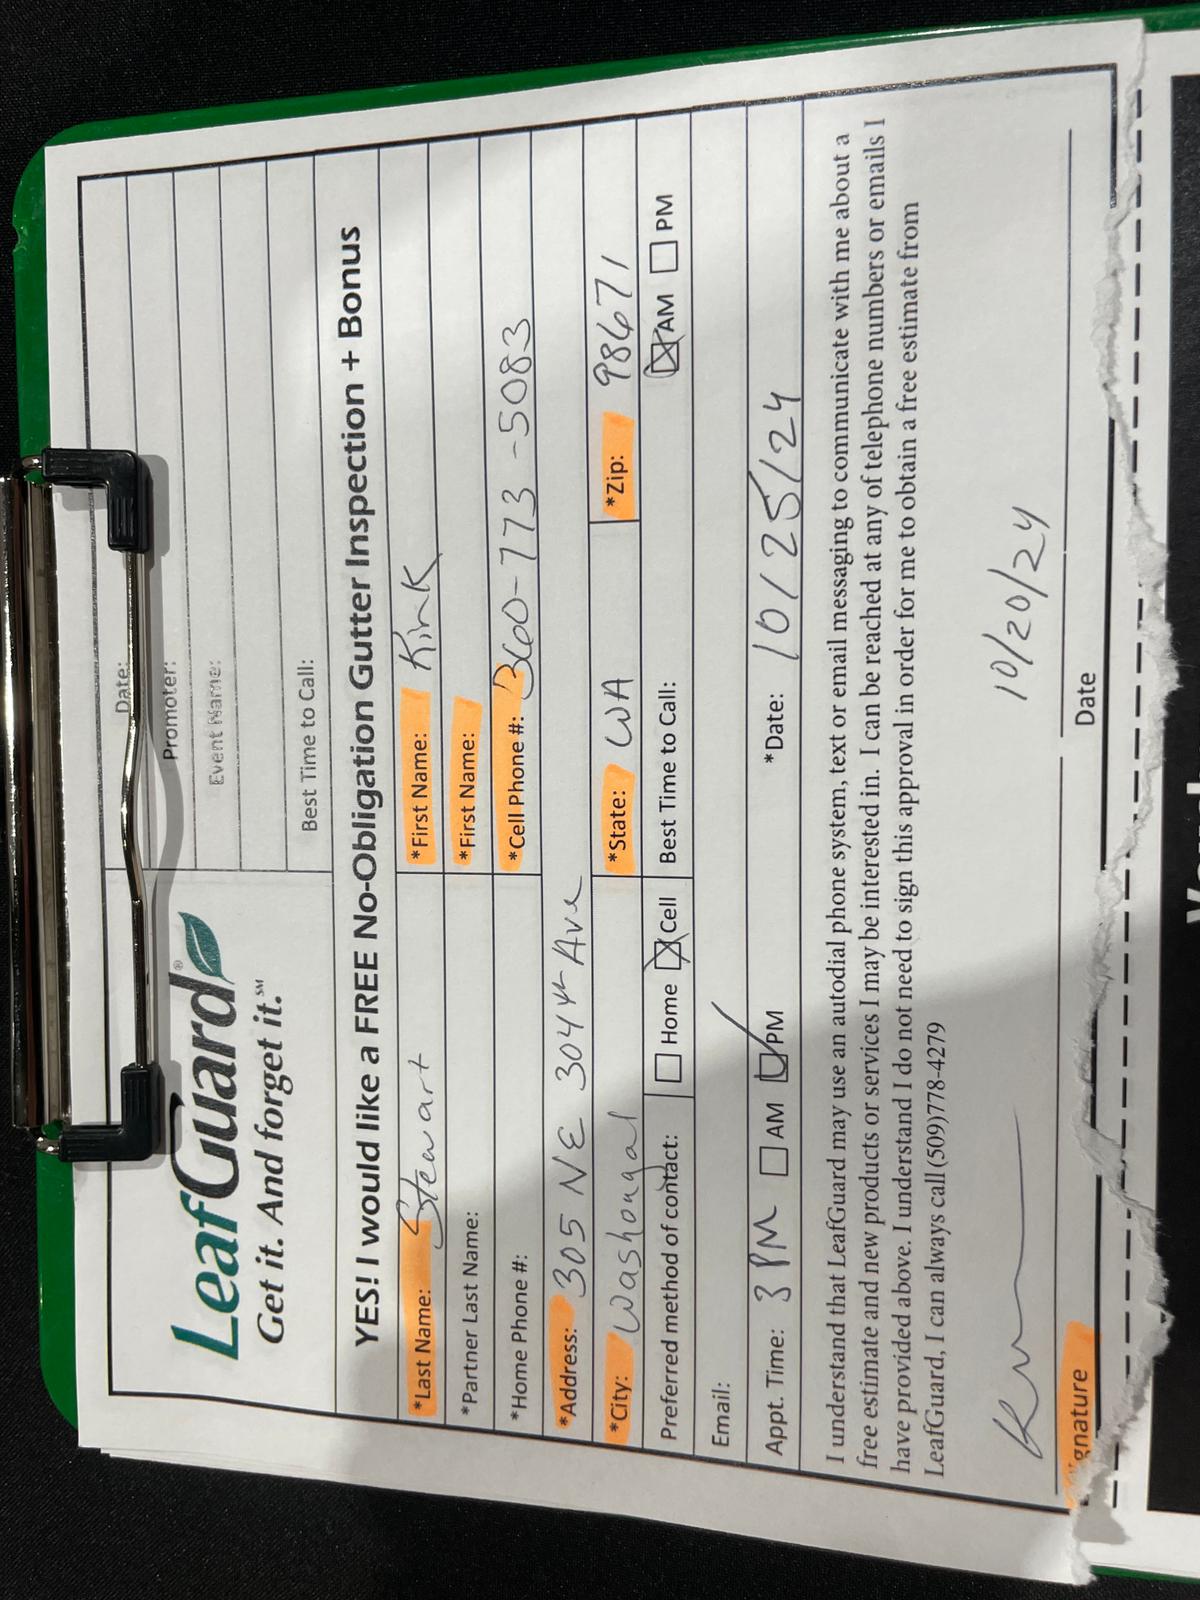 LeafGuard®
Get it. And forget it.℠
Date:
Promoter:
Event Name:
Best Time to Call:
YES! I would like a FREE No-Obligation Gutter Inspection + Bonus
*Last Name: Stewart *First Name: Kirk
*Partner Last Name: *First Name:
*Home Phone #: *Cell Phone #: 360-773-5083
*Address: 305 NE 304th Ave
*City: Washougal *State: WA *Zip: 98671
Preferred method of contact: Home Cell Best Time to Call: AM PM
Email:
Appt. Time: 3 PM AM PM *Date: 10/25/24
I understand that LeafGuard may use an autodial phone system, text or email messaging to communicate with me about a
free estimate and new products or services I may be interested in. I can be reached at any of telephone numbers or emails I
have provided above. I understand I do not need to sign this approval in order for me to obtain a free estimate from
LeafGuard, I can always call (509)778-4279
10/20/24
Signature Date